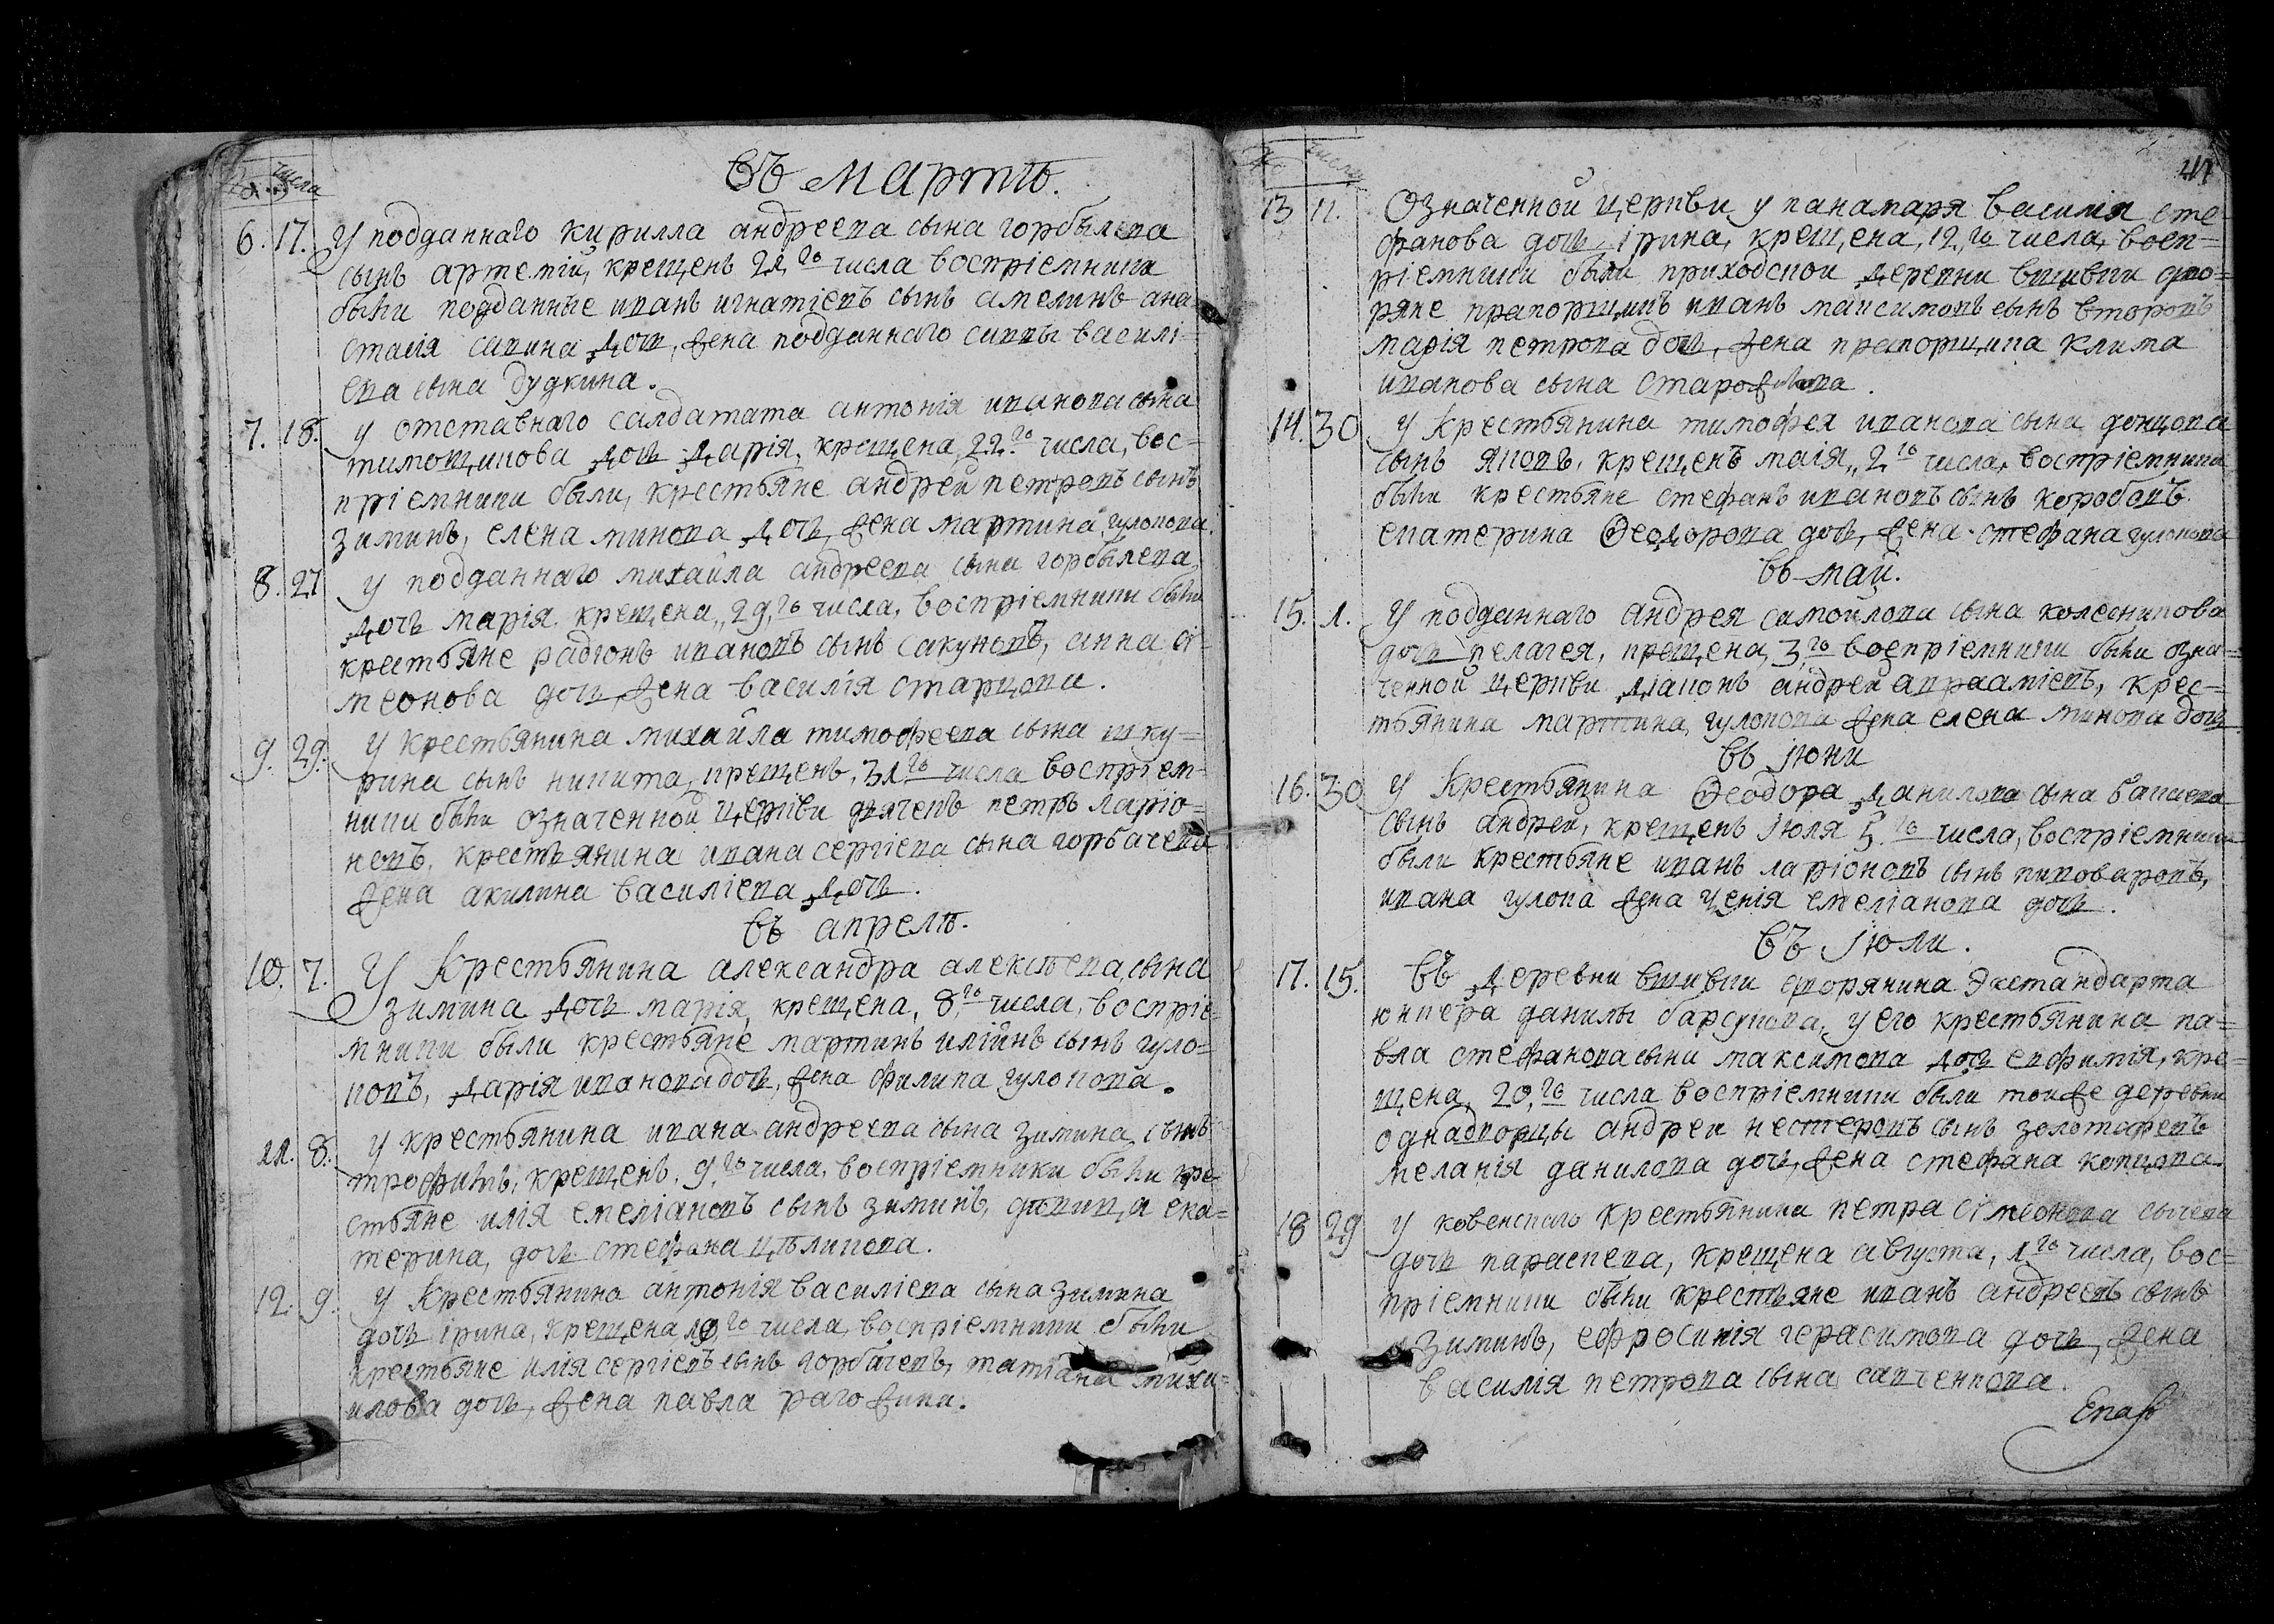 № числа
Въ мартѣ.
6. 17. У подданнаго кирилла андреева сына горбылева
сынъ артемій, крещенъ 21,го числа воспріемники
были подданные иванъ игнатіевъ сынъ амелинъ ана
стасія савина дочь, жена подданнаго саввы василі-
ева сына дудкина.
7. 18. у отставнаго салдатата антонія иванова сына
тимощикова дочь дарія, крещена, 22.го числа, вос-
пріемники были, крестьяне андрей петровъ сынъ
зиминъ, елена минова дочь, жена мартина гулокова.
8. 27 у подданнаго михаила андреева сына горбылева,
дочь марія, крещена, 29,го числа, воспріемники были
крестьяне радіонъ ивановъ сынъ сакуновъ, анна сі-
меонова дочь, жена василія старцова.
9. 29. У крестьянина михаила тимофеева сына шку-
рина сынъ никита, крещенъ, 31го числа воспріем-
ники были означенной церкви дьячекъ петръ ларіо-
новъ, крестьянина ивана сергіева сына горбачева
жена акилина василіева дочь.
въ апрелѣ.
10. 7. У Крестьянина александра алексѣева сына
зимина дочь марія, крещена, 8,го числа, воспріе-
мники были крестьяне мартинъ иліинъ сынъ гуло-
ковъ, дарія иванова дочь, жена филипа гулокова.
11. 8. у крестьянина ивана андреева сына зимина, сынъ
трофимъ, крещенъ, 9,го числа, воспріемники были кре
стьяне илія емеліановъ сынъ зиминъ, дѣвица ека-
терина, дочь стефана цѣпликова.
12. 9. У Крестьянина антонія василіева сына зимина
дочь ірина, крещена 10,го числа, воспріемники были
крестьяне илія сергіевъ сынъ горбачевъ, татіана миха-
илова дочь, жена павла рагожина.
№ числа
13 11. Означенной церкви у панамаря василія сте-
фанова дочь ірина, крещена, 12,го числа, восп-
ріемники были приходской деревни вшивки дво-
ряне прапорщикъ иванъ максимовъ сынъ второвъ
марія петрова дочь, жена прапорщика клима
иванова сына старожилова.
14. 30 У Крестьянина тимофея иванова сына донцова
сынъ яковъ, крещенъ маія, 2го числа, воспріемники
были крестьяне стефанъ ивановъ сынъ коробовъ.
екатерина Ѳеодорова дочь, жена стефана гулокова
въ маи.
15. 1. У подданнаго андрея самойлова сына колесникова
дочь пелагея, крещена, 3,го воспріемники были озна-
ченной церкви діаконъ андрей авраамієвъ, крес-
тьянина мартина, гулокова жена елена минова дочь
въ іюни
16. 30 У Крестьянина Ѳеодора данилова сына бакшева
сынъ андрей, крещенъ Іюля 5.го числа, воспріемники
были крестьяне иванъ ларіоновъ сынъ пивоваровъ,
ивана гулова жена ценія емеліанова дочь.
въ Іюли.
17. 15. Въ деревни вшивки дворянина Экстандарта
юнкера данилы барсукова, у его крестьянина па-
вла стефанова сына максимова дочь евфимія, кре-
щена, 20,го числа воспріемники были тойже деревни
однадворцы андрей нестеровъ сынъ золотаревъ
меланія данилова дочь, жена стефана копцова.
18 29 у ковенскаго крестьянина петра сімеонова сычева
дочь параскева, крещена августа, 1го числа, вос-
пріемники были крестьяне иванъ андреевъ сынъ
зиминъ, ефросинія герасимова дочь, жена
василія петрова сына савченкова.